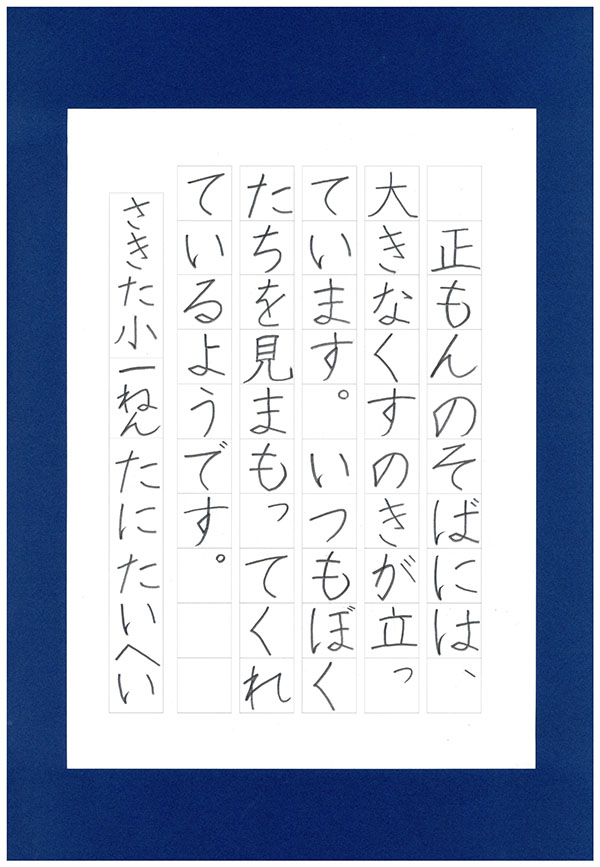 正もんのそばには、
大きなくすのきが立っ
ています。いつもぼく
たちを見まもってくれ
ているようです。
さきた小一ねん たに たいへい